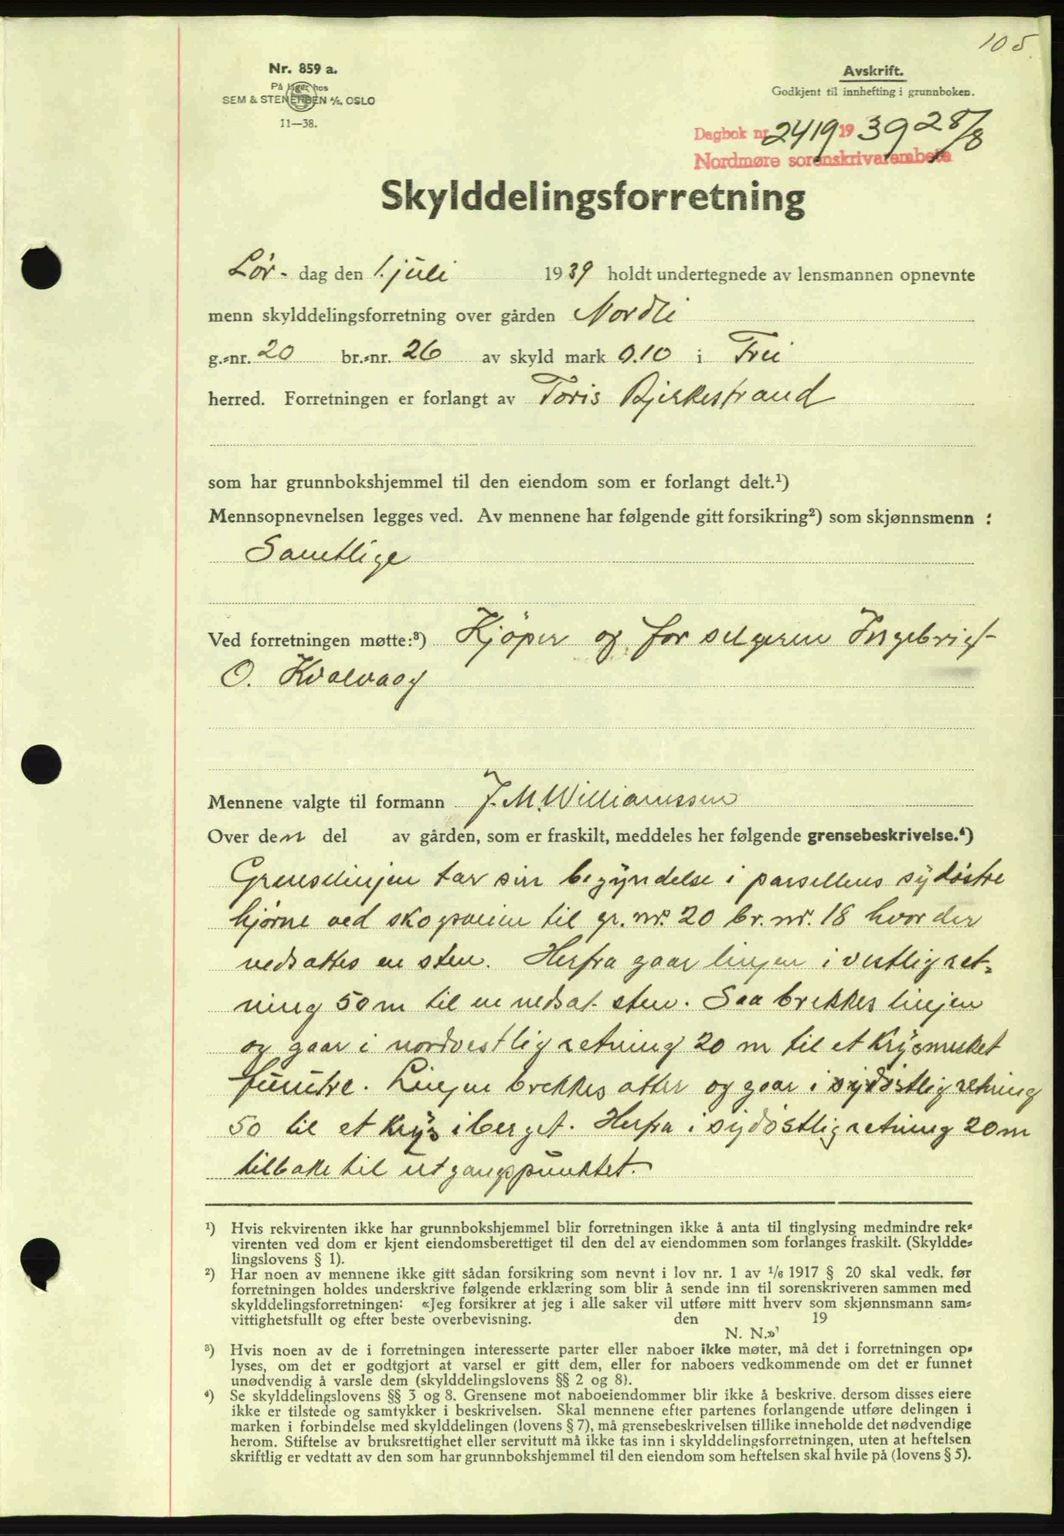 105
Nr. 859 a.
På lager hos
SEM & STENERSEN A/S, OSLO
11—38.
Avskrift.
Godkjent til innhefting i grunnboken.
Dagbok nr. 2419 19 39 28/8
Nordmøre sorenskrivarembete
Skylddelingsforretning
Lør- dag den 1. juli 1939 holdt undertegnede av lensmannen opnevnte
menn skylddelingsforretning over gården Nordli
g.-nr. 20 br.-nr. 26 av skyld mark 0.10 i Frei
herred. Forretningen er forlangt av Toris Bjerkestrand
som har grunnbokshjemmel til den eiendom som er forlangt delt.¹)
Mennsopnevnelsen legges ved. Av mennene har følgende gitt forsikring²) som skjønnsmenn :
Samtlige
Ved forretningen møtte:³) Kjöper og for selgeren Ingebrigt
O. Kvalvaag
Mennene valgte til formann J. M. Williamssen
Over den del av gården, som er fraskilt, meddeles her følgende grensebeskrivelse.⁴)
Grenselinjen tar sin begyndelse i parsellens sydöstre
hjørne ved skogsveien til gr. nr. 20 br. nr. 18 hvor der
nedsattes en sten. Herfra gaar linjen i vestlig ret-
ning 50 m til en nedsat sten. Saa brekkes linjen
og gaar i nordvestlig retning 20 m til et krysmerket
furutre. Linjen brekkes atter og gaar i sydöstlig retning
50 til et krys i berget. Herfra i sydöstlig retning 20 m
tilbake til utgangspunktet.
¹) Hvis rekvirenten ikke har grunnbokshjemmel blir forretningen ikke å anta til tinglysing medmindre rek-
virenten ved dom er kjent eiendomsberettiget til den del av eiendommen som forlanges fraskilt. (Skyldde-
lingslovens § 1).
²) Har noen av mennene ikke gitt sådan forsikring som nevnt i lov nr. 1 av 1/6 1917 § 20 skal vedk. før
forretningen holdes underskrive følgende erklæring som blir å sende inn til sorenskriveren sammen med
skylddelingsforretningen: «Jeg forsikrer at jeg i alle saker vil utføre mitt hverv som skjønnsmann sam-
vittighetsfullt og efter beste overbevisning. den 19
N. N.»
³) Hvis noen av de i forretningen interesserte parter eller naboer ikke møter, må det i forretningen op-
lyses, om det er godtgjort at varsel er gitt dem, eller for naboers vedkommende om det er funnet
unødvendig å varsle dem (skylddelingslovens §§ 2 og 8).
⁴) Se skylddelingslovens §§ 3 og 8. Grensene mot naboeiendommer blir ikke å beskrive, dersom disses eiere
ikke er tilstede og samtykker i beskrivelsen. Skal mennene efter partenes forlangende utføre delingen i
marken i forbindelse med skylddelingen (lovens § 7), må grensebeskrivelsen tillike inneholde det nødvendige
herom. Stiftelse av bruksrettighet eller servitutt må ikke tas inn i skylddelingsforretningen, uten at heftelsen
skriftlig er vedtatt av den som har grunnbokshjemmel til den eiendom som heftelsen skal hvile på (lovens § 5).